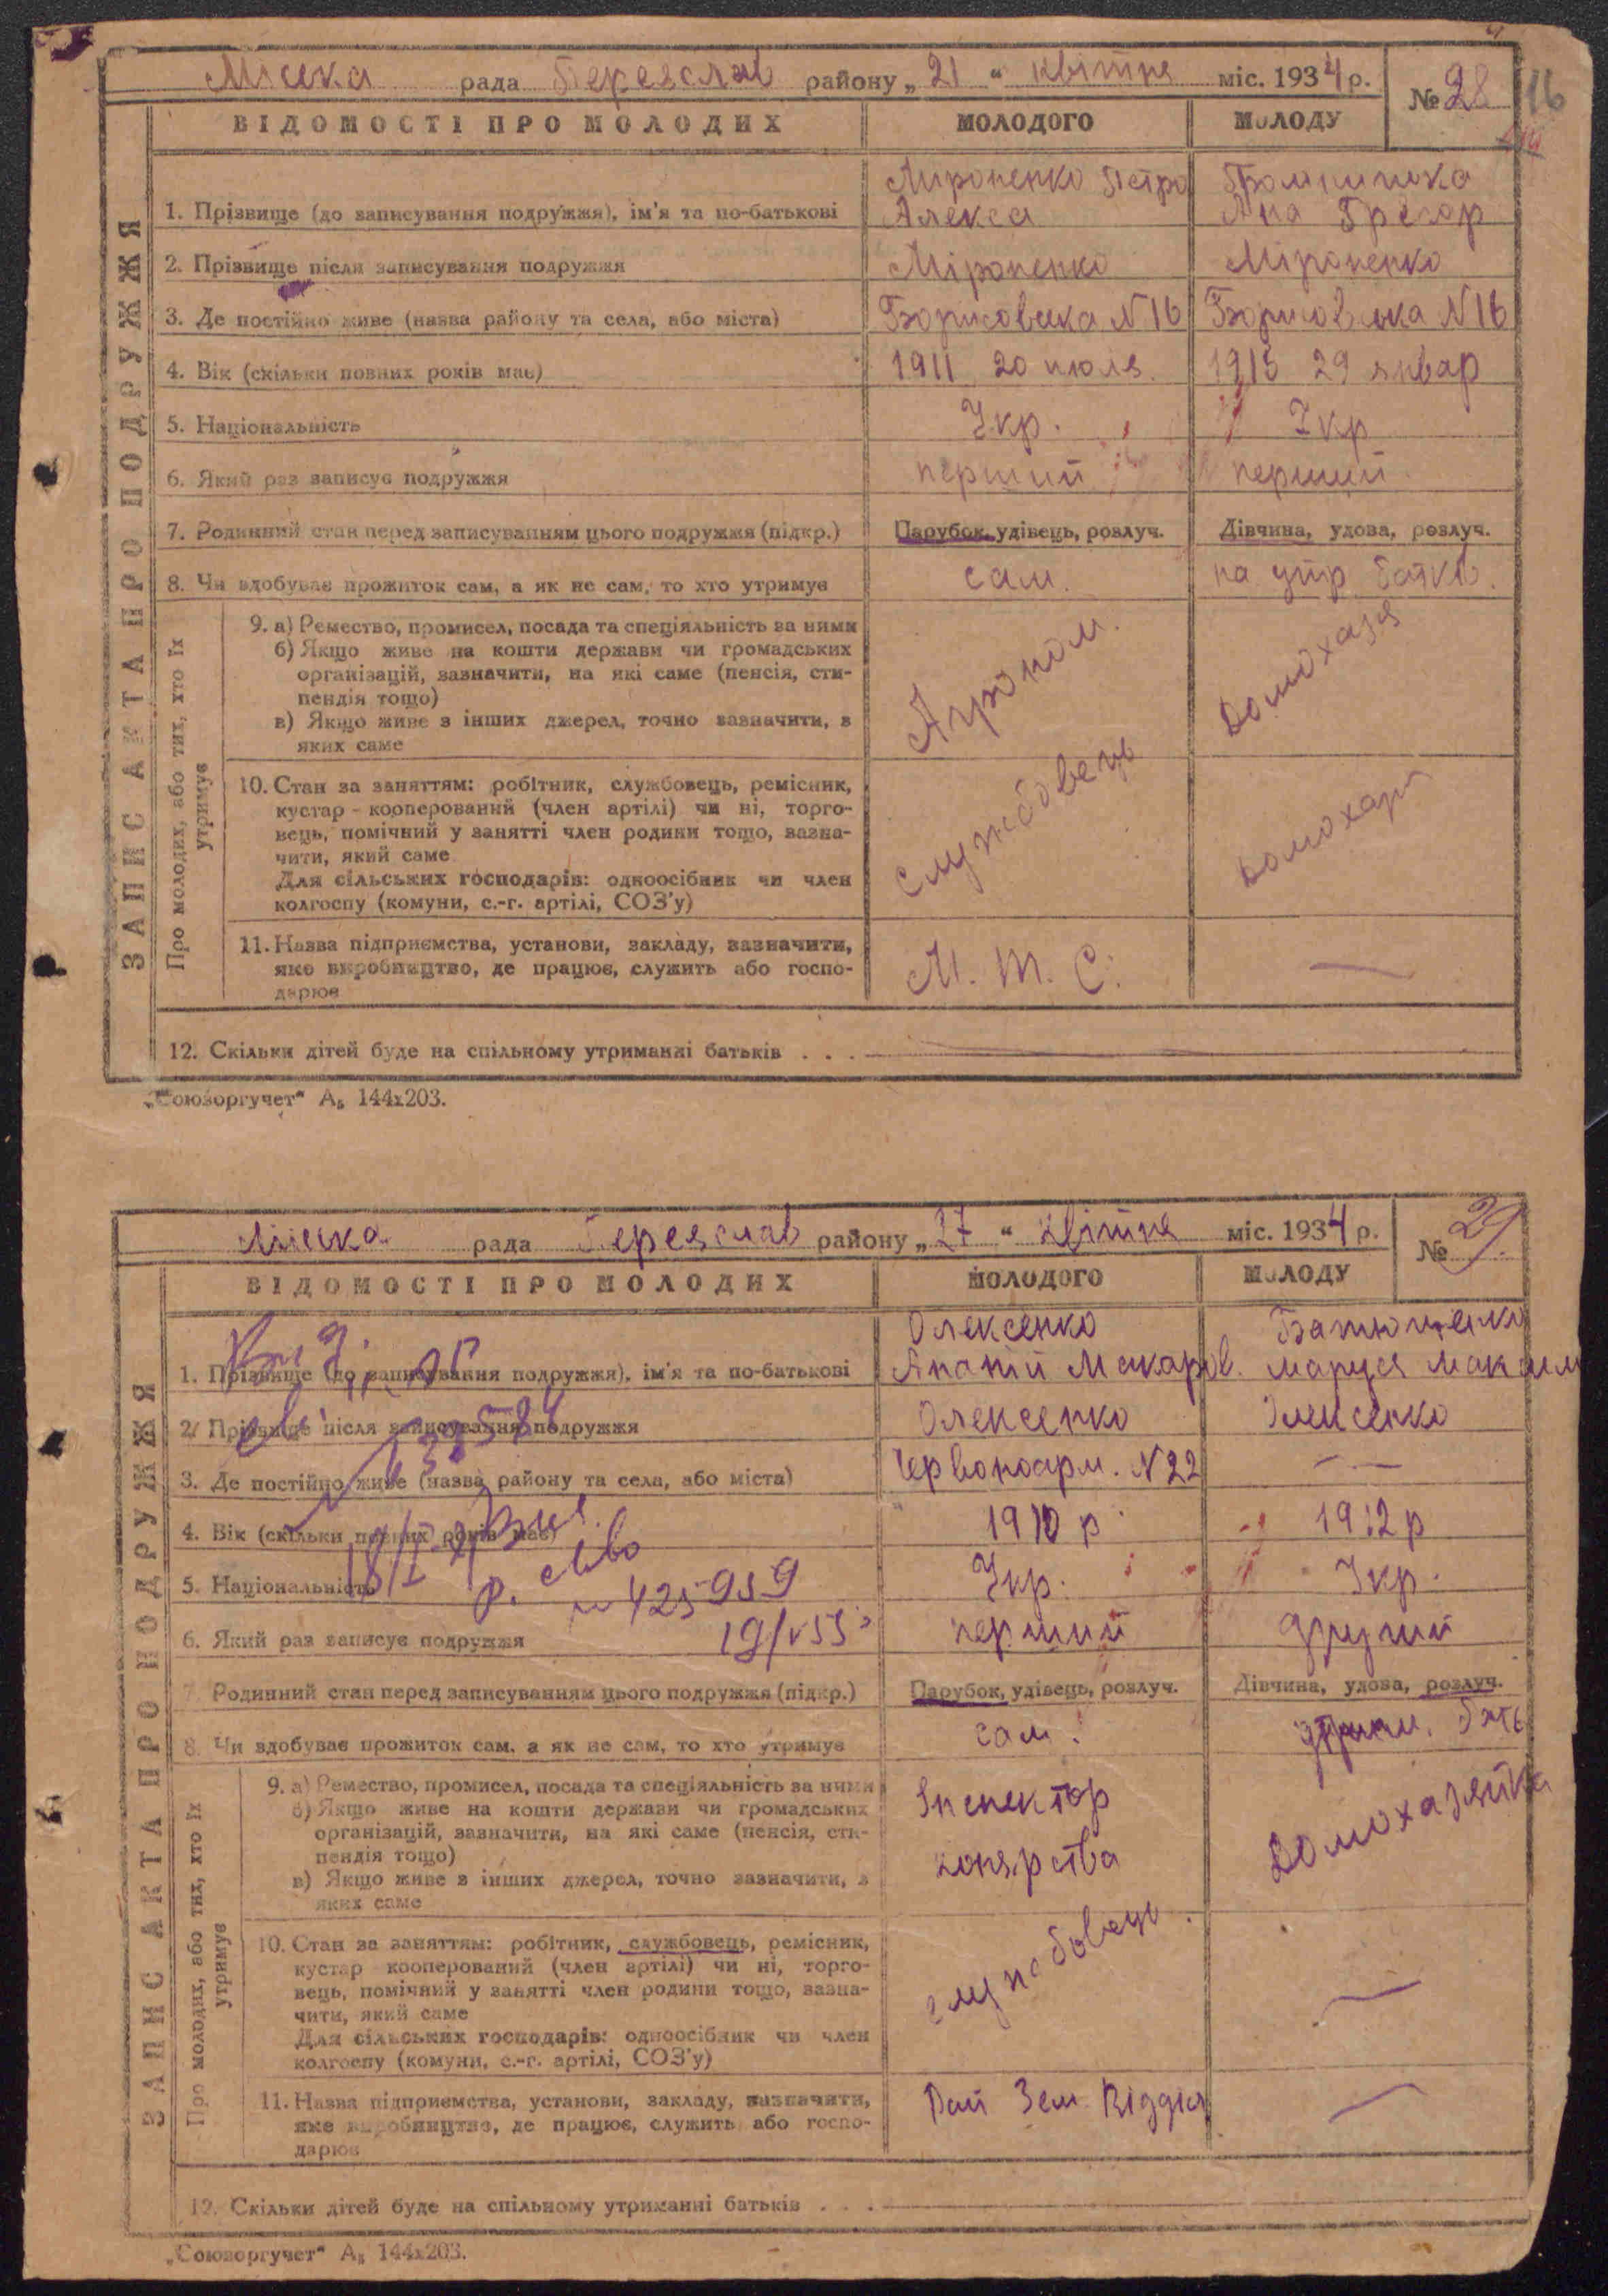 Міська рада Переяслав району „21“ квітня міс. 1934 р.
№ 28
16
ВІДОМОСТІ ПРО МОЛОДИХ МОЛОДОГО МОЛОДУ
ЗАПИС АКТА ПРО ПОДРУЖЖЯ
Мироненко Петро
1. Прізвище (до записування подружжя), ім'я та по-батькові Алекса Ана Грегор
2. Прізвище після записування подружжя Міроненко Міроненко
3. Де постійно живе (назва району та села, або міста) Борисовська N 16 Борисовська N 16
4. Вік (скільки повних років має) 1911 20 июля 1915 29 январ
5. Національність Укр. Укр
6. Який раз записує подружжя перший перший
7. Родинний стан перед записуванням цього подружжя (підкр.) Парубок, удівець, розлуч. Дівчина, удова, розлуч.
8. Чи здобуває прожиток сам, а як не сам, то хто утримує сам. на утр. батьків.
Про молодих, або тих, хто їх утримує
9. а) Ремество, промисел, посада та спеціяльність за ними
б) Якщо живе на кошти держави чи громадських
організацій, зазначити, на які саме (пенсія, сти-
пендія тощо)
в) Якщо живе з інших джерел, точно зазначити, з
яких саме
Агроном. Домохазя
10. Стан за заняттям: робітник, службовець, ремісник,
кустар - кооперований (член артілі) чи ні, торго-
вець, помічний у занятті член родини тощо, зазна-
чити, який саме
Для сільських господарів: одноосібник чи член
колгоспу (комуни, с.-г. артілі, СОЗ'у)
службовець
11. Назва підприємства, установи, закладу, зазначити,
яке виробництво, де працює, служить або госпо-
дарює
М. Т. С. —
12. Скільки дітей буде на спільному утриманні батьків . . .
„Союзоргучет“ А₅ 144х203.
Міська рада Переяслав району „27“ квітня міс. 1934 р.
№ 29.
ВІДОМОСТІ ПРО МОЛОДИХ МОЛОДОГО МОЛОДУ
ЗАПИС АКТА ПРО ПОДРУЖЖЯ
Олексенко
1. Прізвище (до записування подружжя), ім'я та по-батькові Ананій Макаров. Маруся Максим
2. Прізвище після записування подружжя Олексенко Олексенко
3. Де постійно живе (назва району та села, або міста) Червоноарм. N 22 —
4. Вік (скільки повних років має) 1910 р 1912 р
5. Національність Укр. Укр.
N 425959
6. Який раз записує подружжя перший другий
7. Родинний стан перед записуванням цього подружжя (підкр.) Парубок, удівець, розлуч. Дівчина, удова, розлуч.
8. Чи здобуває прожиток сам, а як не сам, то хто утримує сам.
Про молодих, або тих, хто їх утримує
9. а) Ремество, промисел, посада та спеціяльність за ними
б) Якщо живе на кошти держави чи громадських
організацій, зазначити, на які саме (пенсія, сти-
пендія тощо)
в) Якщо живе з інших джерел, точно зазначити, з
яких саме
Інспектор
конярства
Домохазяйка
10. Стан за заняттям: робітник, службовець, ремісник,
кустар кооперований (член артілі) чи ні, торго-
вець, помічний у занятті член родини тощо, зазна-
чити, який саме
Для сільських господарів: одноосібник чи член
колгоспу (комуни, с.-г. артілі, СОЗ'у)
службовець. —
11. Назва підприємства, установи, закладу, зазначити,
яке виробництво, де працює, служить або госпо-
дарює
Рай Зем. Відділ —
12. Скільки дітей буде на спільному утриманні батьків . . .
„Союзоргучет“ А₅ 144х203.